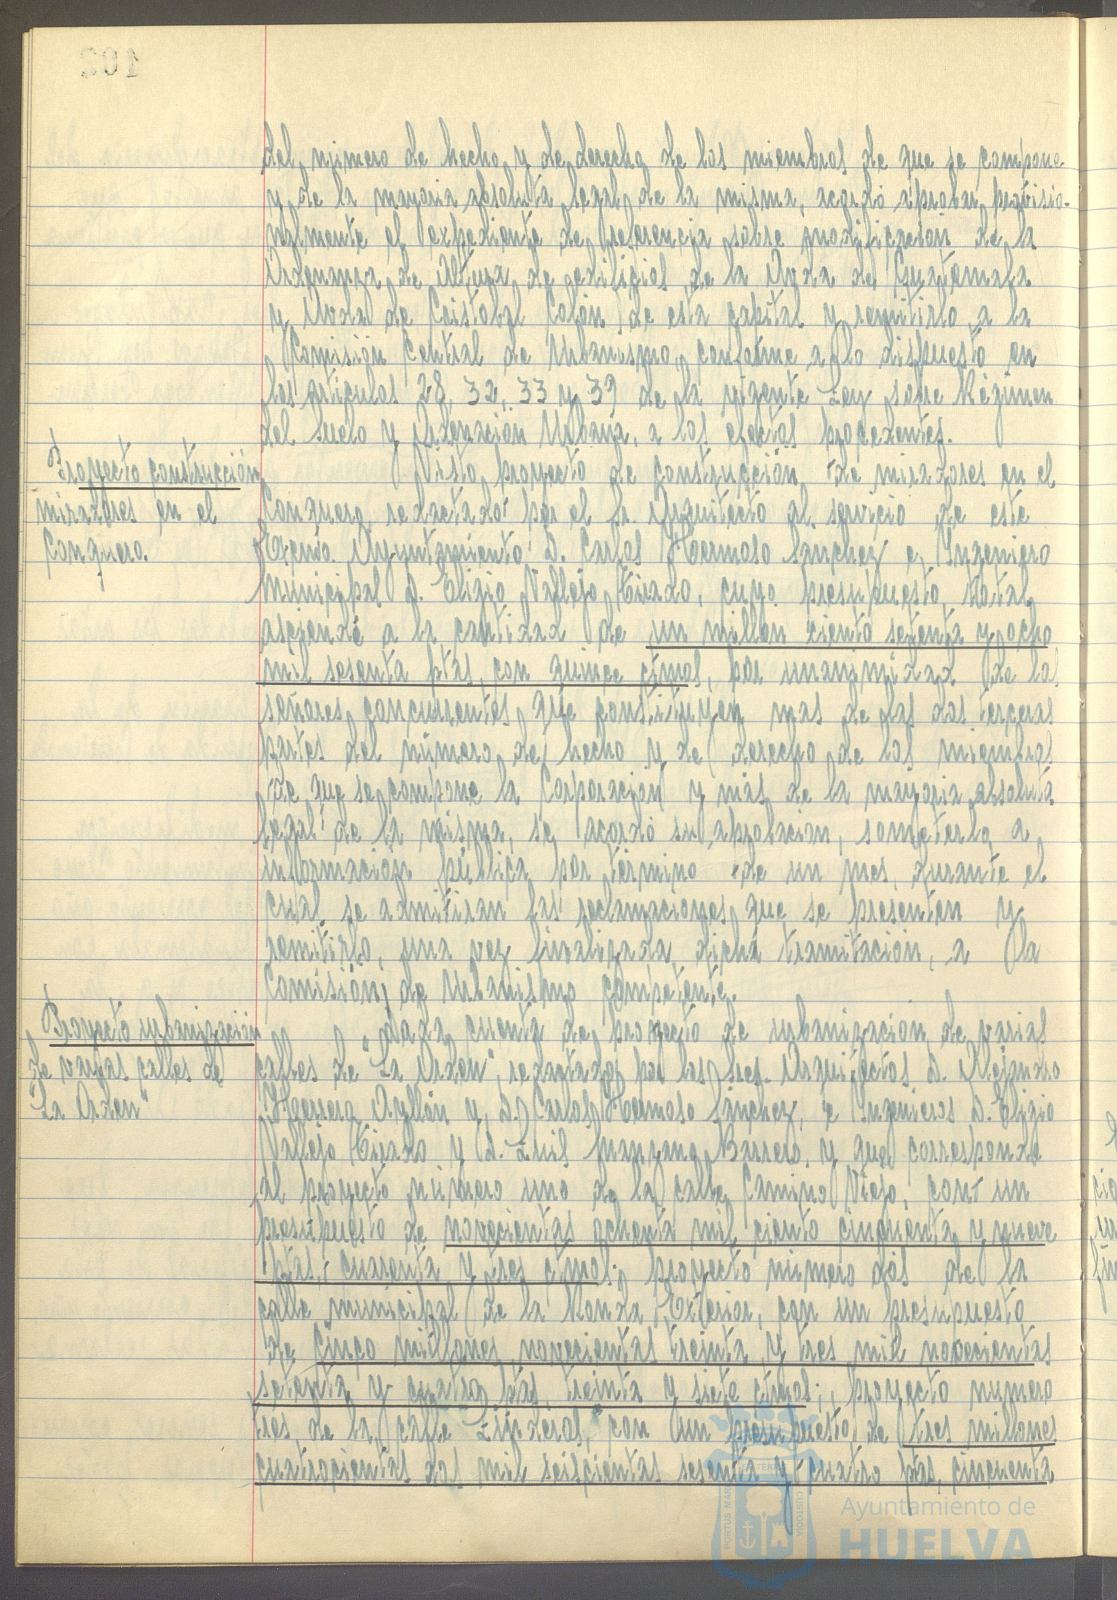 del número de hecho y de derecho de los miembros de que se compone
y de la mayoría absoluta legal de la misma, acordó aprobar provisio-
nalmente el expediente de referencia sobre modificación de la
Ordenanza de Altura de edificios de la Avda de Guatemala
y Avda de Cristobal Colón de esta capital y remitirlo a la
Comisión Central de Urbanismo, conforme a lo dispuesto en
los artículos 28, 32, 33 y 39 de la vigente Ley sobre Régimen
del Suelo y Ordenación Urbana, a los efectos procedentes.
Proyecto construcción
miradores en el
Conquero.
Visto proyecto de construcción de miradores en el
Conquero, redactado por el Sr. Arquitecto al servicio de este
Excmo. Ayuntamiento D. Carlos Hermoso Sanchez e Ingeniero
Municipal D. Eligio Vallejo Tirado, cuyo presupuesto total
asciende a la cantidad de un millon ciento setenta y ocho
mil sesenta ptas, con quince ctmos, por unanimidad de los
señores concurrentes que constituyen mas de las dos terceras
partes del número de hecho y de derecho de los miembros
de que se compone la Corporación y más de la mayoria absoluta
legal de la misma, se acordó su aprobación, someterlo a
información pública por término de un mes, durante el
cual se admitiran las reclamaciones que se presenten y
remitirlo, una vez finalizada dicha tramitación, a la
Comisión de Urbanismo competente.
Proyecto urbanización
de varias calles de
"La Orden"
Dada cuenta de proyecto de urbanización de varias
calles de "La Orden", redactados por los Sres. Arquitectos D. Alejandro
Herrera Ayllón y D. Carlos Hermoso Sánchez, e Ingenieros D. Eligio
Vallejo Tirado y D. Luis Manzano Barrero, y que corresponde
al proyecto número uno de la calle Camino Viejo, con un
presupuesto de novecientas ochenta mil ciento cincuenta y nueve
ptas, cuarenta y tres ctmos; proyecto número dos de la
calle municipal de la Ronda Exterior, con un presupuesto
de cinco millones novecientas treinta y tres mil novecientas
setenta y cuatro ptas, treinta y siete ctmos; proyecto numero
tres de la calle Linderos, con un presupuesto de tres millones
cuatrocientas dos mil seiscientas sesenta y cuatro ptas, cincuenta
Ayuntamiento de
HUELVA